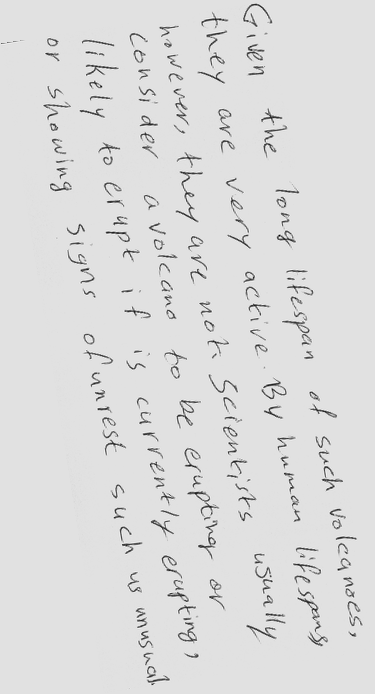 Given the long lifespan of such volcanoes,
they are very active. By human lifespans,
however, they are not. Scientists usually
consider a volcano to be erupting or
likely to erupt if is currently erupting,
or showing signs of unrest such us unusual